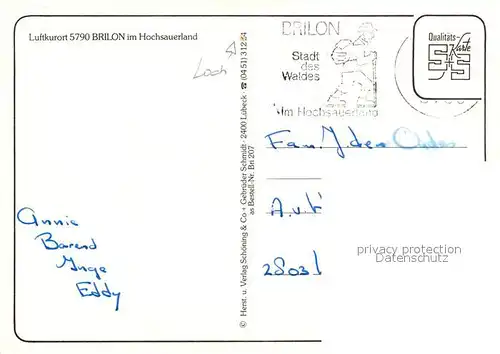 Luftkurort 5790 BRILON im Hochsauerland
Loch
BRILON
Stadt
des
Waldes
im Hochsauerland
Qualitäts-
Karte
© Herst. u. Verlag Schöning & Co + Gebrüder Schmidt · 2400 Lübeck · ☎ (04 51) 312 34
as Bestell-Nr. Bri 207
Fam. J. den
A.v.
2803
privacy protection
Datenschutz
Annie
Barend
Inge
Eddy